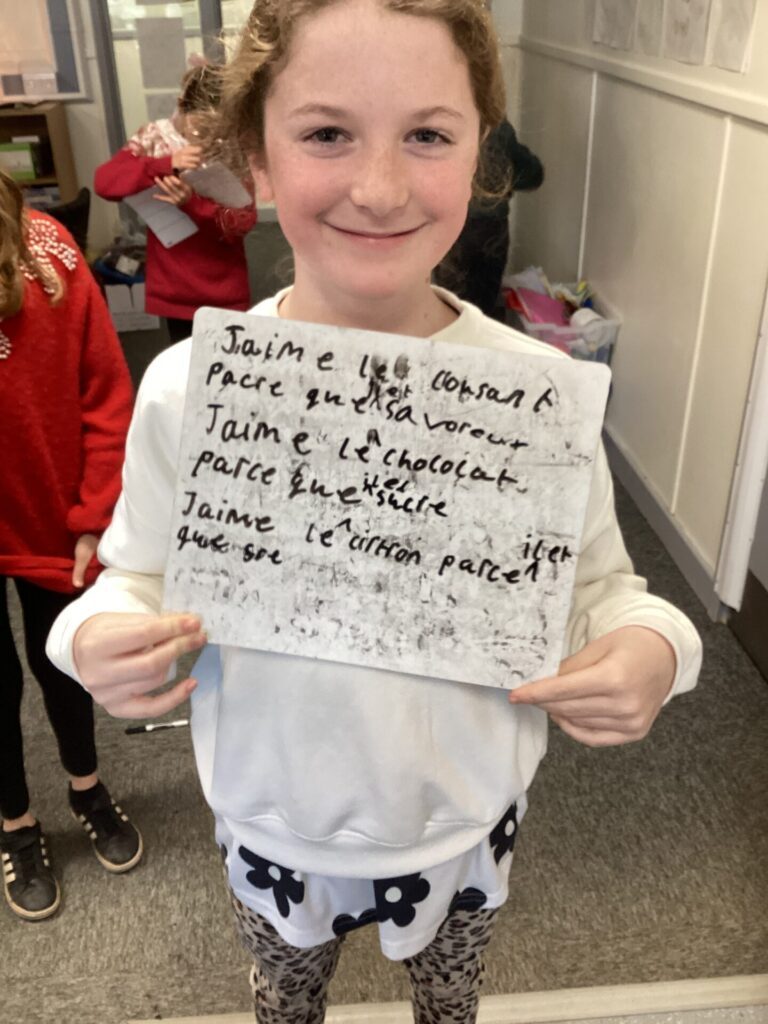 J'aime le corsant
pacre que il et savoreux
J'aime le chococat.
parce que il et sucre
J'aime le citron parce il et
que